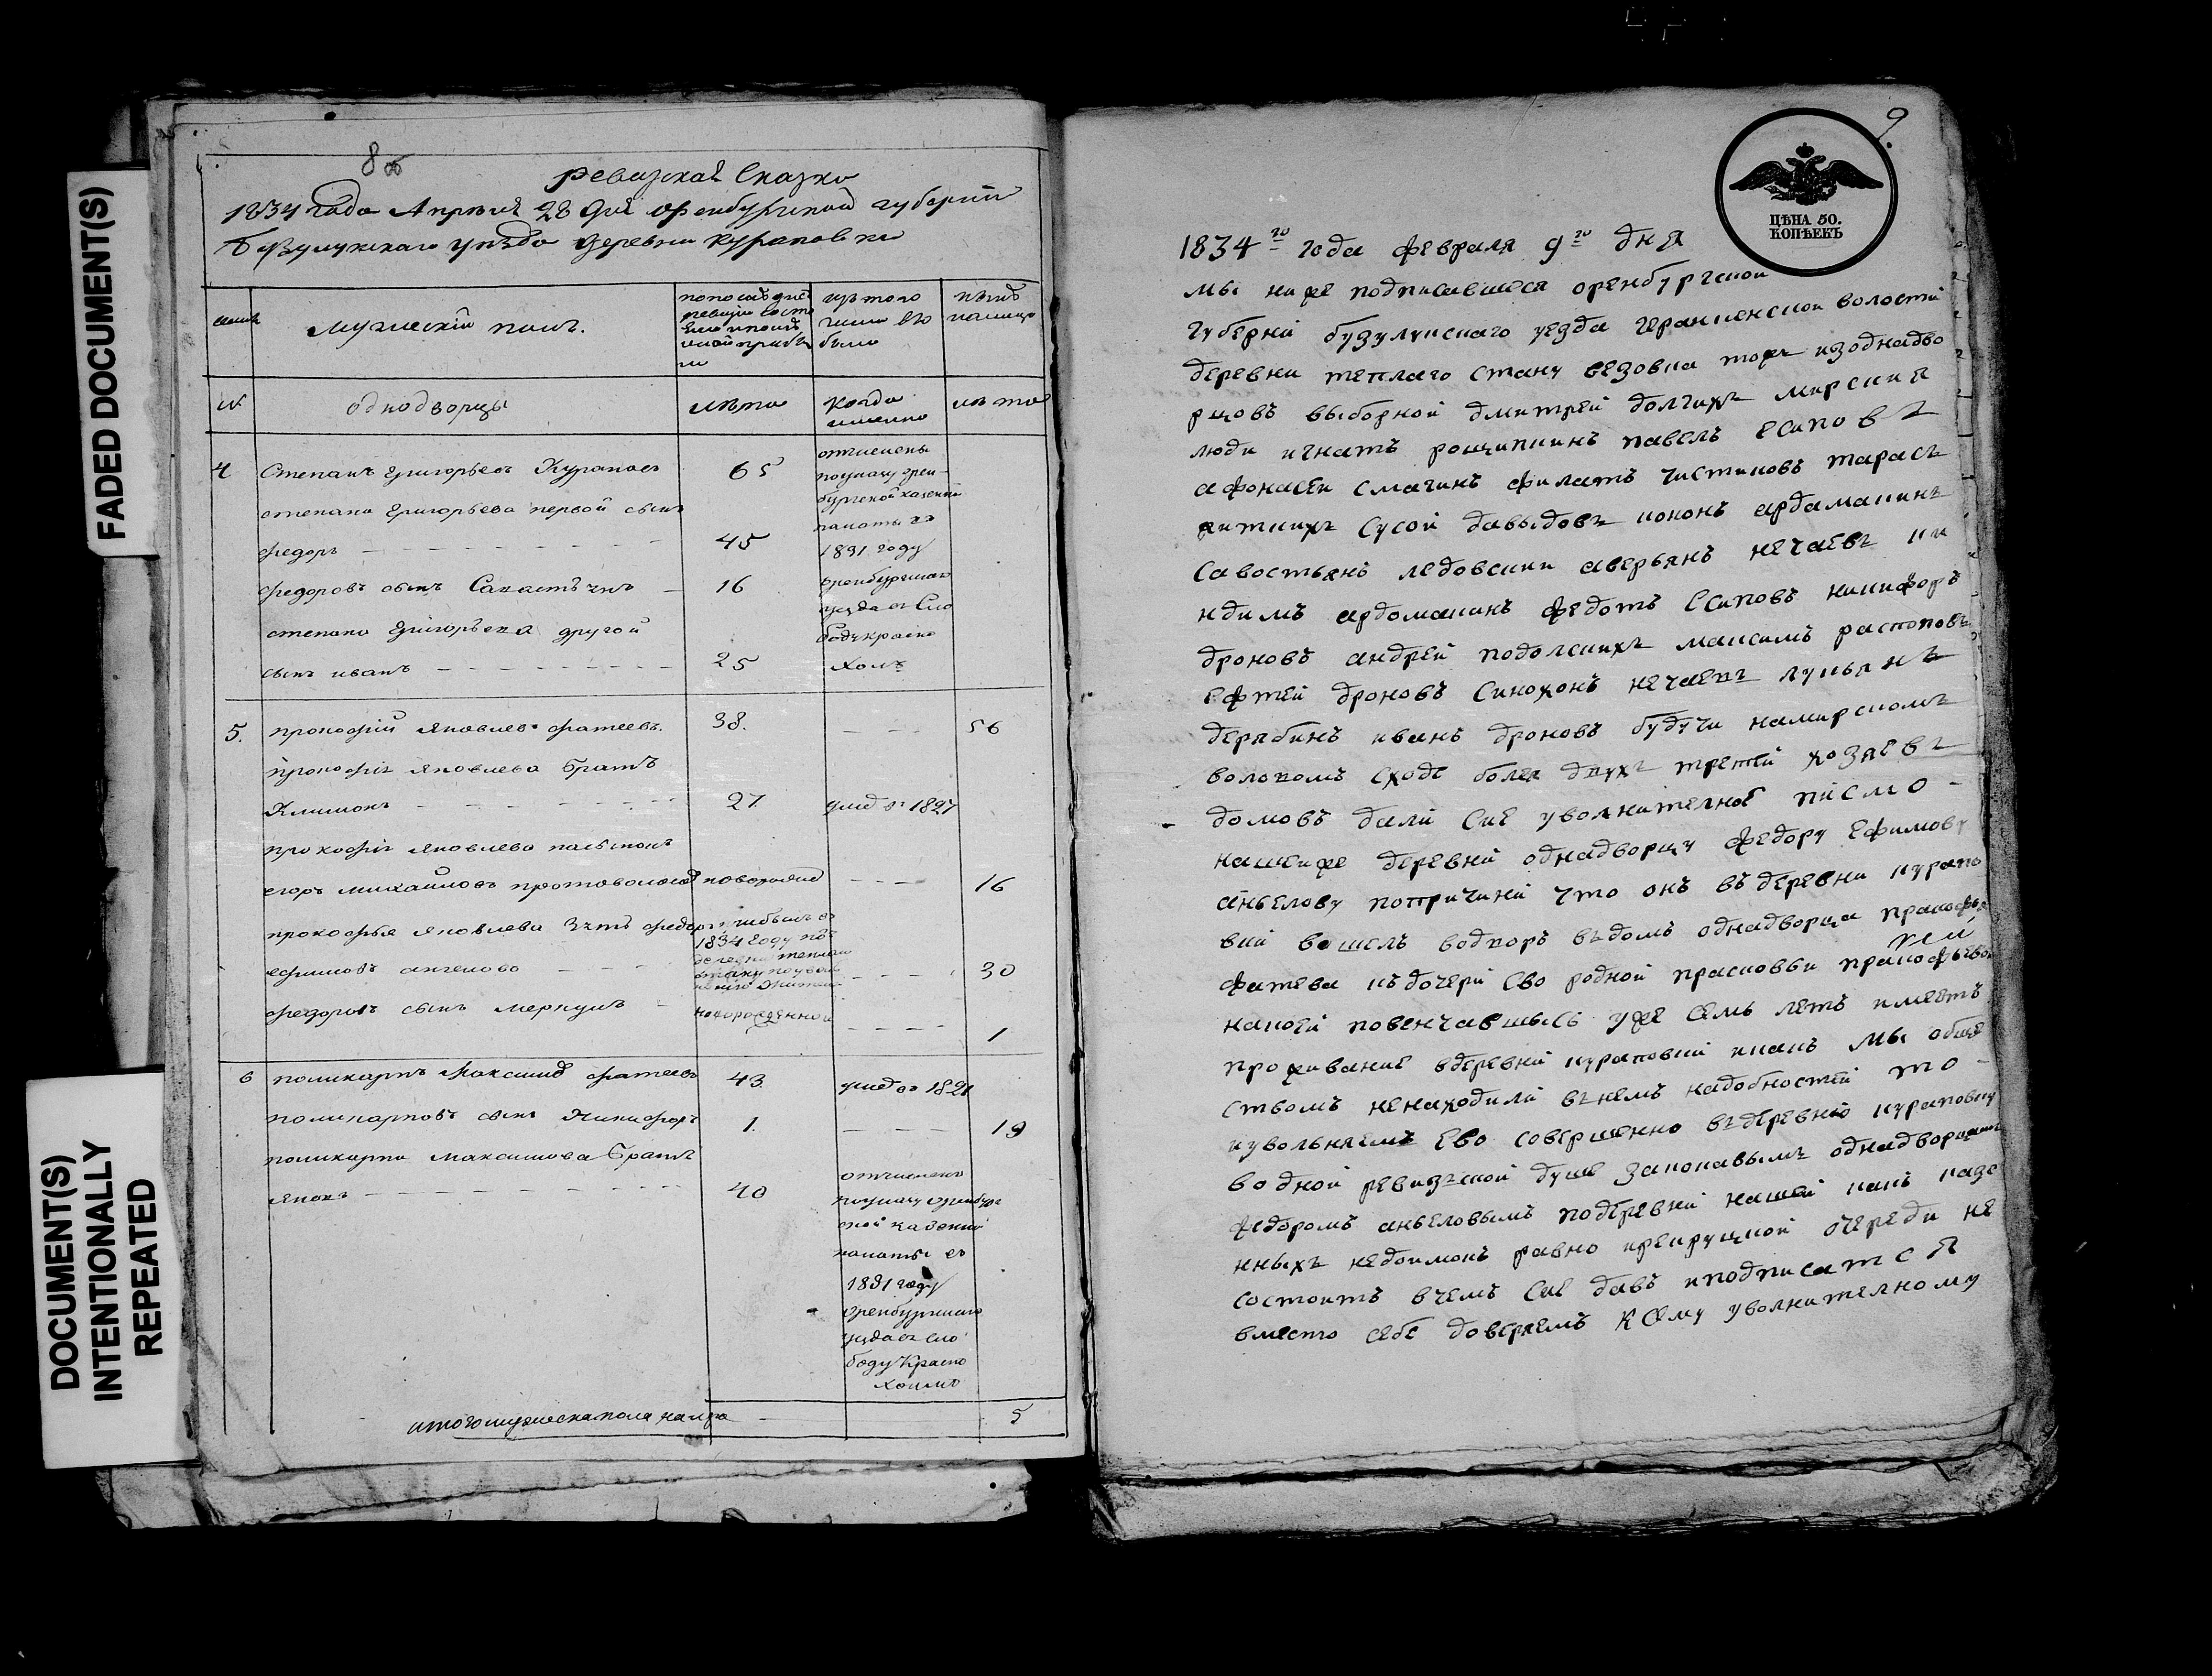 FADED DOCUMENT(S)
DOCUMENT(S)
INTENTIONALLY
REPEATED
8 об
ревизская сказка
1834 года Апреля 28 дня оренбургской губернии
Бузулукского уезда деревни курановки
мужеский полъ.
по последней
ревизии состо
яло и после
оной прибы
ло
изъ того
числа вы
было
ныне
налицо
№
однодворцы
лета
когда
именно
лета
4
Степанъ григорьевъ Курапов
65
отчислены
по указу орен-
бургской казенной
палаты въ
1831 году
оренбургскаго
уезда въ сло
боду красно
холм
степана григорьева первой сынъ
федоръ
45
федоровъ сынъ Савастьянъ
16
степана григорьева другой
сынъ иванъ
25
5.
прокофий яковлевъ фатеевъ.
38.
56
прокофия яковлева братъ
Климонъ
27
умер в 1827
прокофия яковлева пасынокъ
егоръ михайловъ
16
прокофья яковлева зять федоръ
прибылъ въ
1834 году
ефимовъ ангелово
30
федоровъ сынъ меркулъ
новорожденной
1
6
поликарпъ максимов фатеевъ
43
умер в 1821
поликарповъ сынъ Никифоръ
1.
19
поликарпа максимова братъ
яковъ
40
отчисленъ
по указу оренбург
ской казенной
палаты въ
1831 году
оренбургскаго
уезда въ сло
боду Красно
холмо
итого мужеска пола налицо
5
9.
ЦѢНА 50.
КОПѢЕКЪ
1834 го года февраля 9 го дня
мы ниже подписавшеся оренбургской
губернй бузулукскаго уезда волостй
деревни теплаго стану тожъ изоднадво
рцовъ выборной дмитрей долгихъ мирския
люди игнатъ рощупкинъ павелъ есиповъ
афонасеи смагинъ филатъ чистиковъ тарасъ
житкихъ сусой давыдовъ кононъ ардамакинъ
савостьянъ ледовскии аверьянъ нечаевъ ки
ндимъ ардомакинъ федотъ есиповъ никифоръ
дроновъ андрей подолскихъ максимъ распоповъ
ефтей дроновъ нечаевъ лукьянъ
дерябинъ иванъ дроновъ будучи намирскомъ
волскомъ сходе более двухъ третей хозяевъ
домовъ дали сие уволнителное писмо -
нашейже деревнй однадворцу федору ефимову
аньелову попричинй что онъ въ деревни курапо
вкй вошелъ водворъ въдомъ однадворца пракофья
фатева къдочери ево родной прасковьи пракофьевой
накоей повенчавшысь уже семь летъ имеетъ
проживание вдеревнй курапов­кй икакъ мы обще
ствомъ ненаходилй внемъ надобностей то -
иувольняемъ ево совершенно въдеревню кураповку
водной ревизской душе закоковымъ однадворцамъ
федоромъ аньеловымъ подеревнй нашей какъ казе
нныхъ недоимокъ равно ирекруцкой очереди не
состоитъ вчемъ сие давъ иподписатся
вместо себе доверяемъ ксему уволнителному